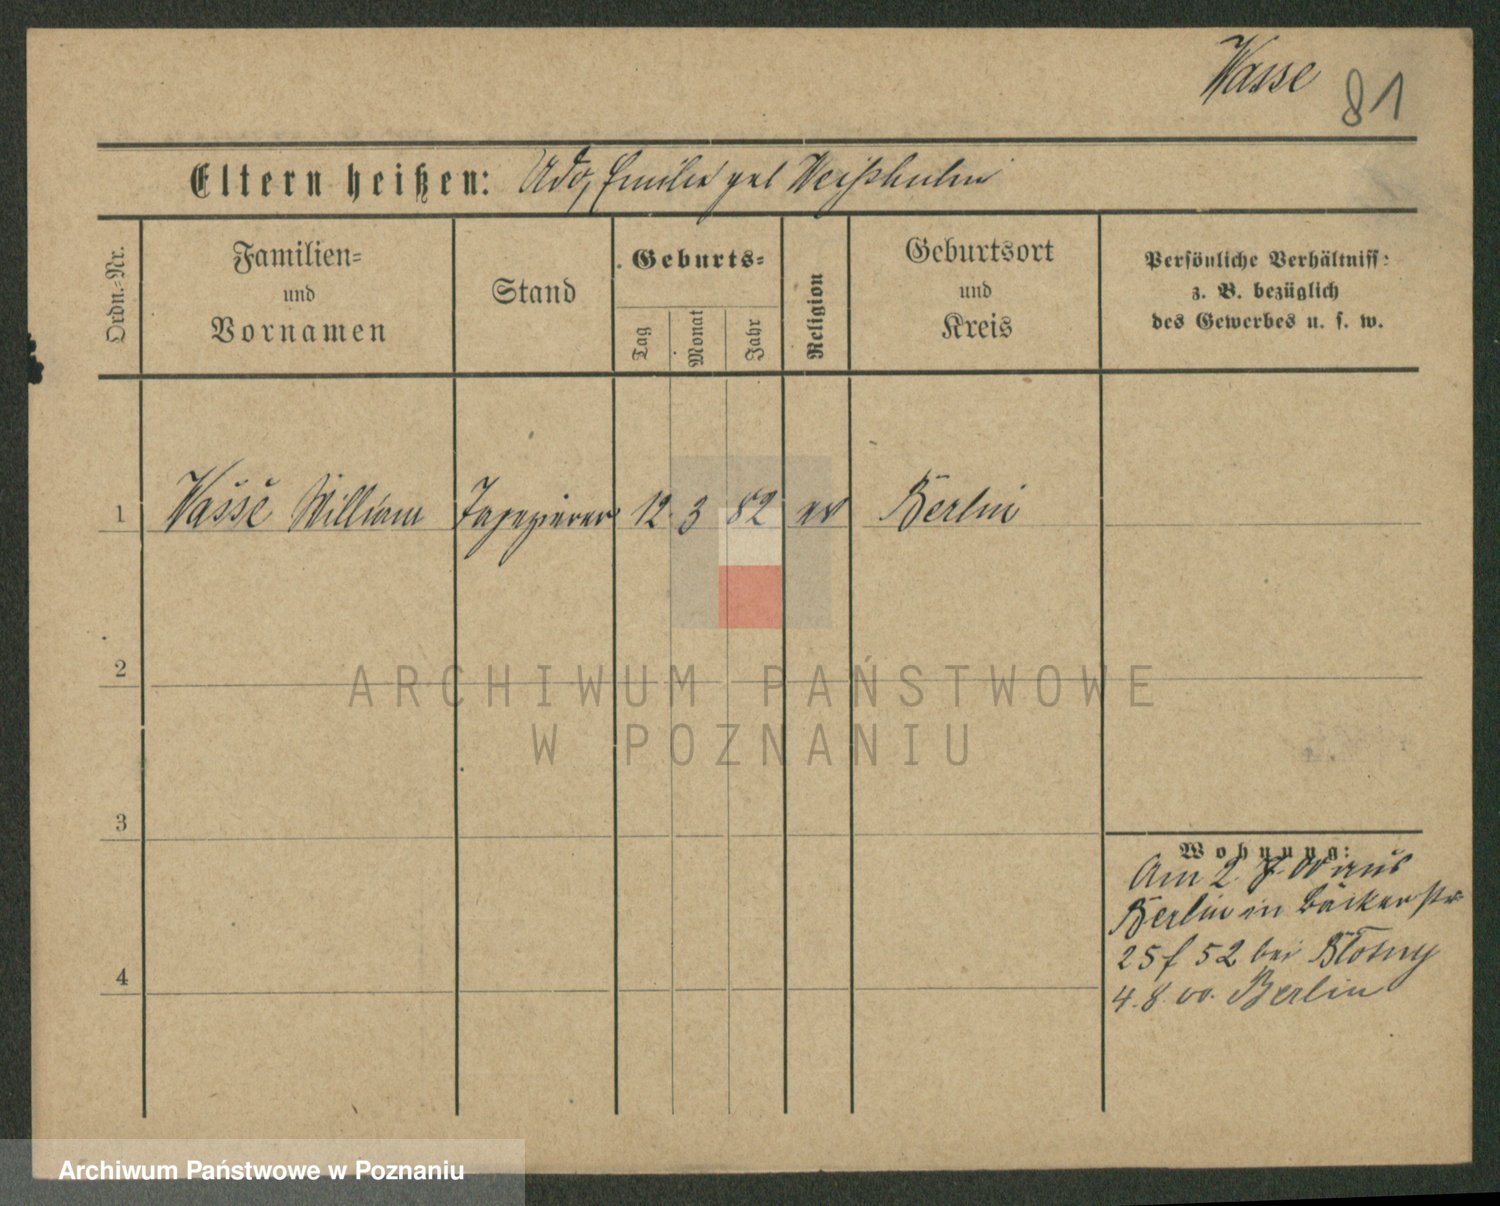 Wasse
81
Eltern heißen: Udo, Emilie geb
Ordn.-Nr.
Familien-
und
Vornamen
Stand
Geburts-
Tag
Monat
Jahr
Religion
Geburtsort
und
Kreis
Persönliche Verhältniss:
z. B. bezüglich
des Gewerbes u. s. w.
1 Wasse William Tapezierer 12 3 82 ev Berlin
2
3
4
Wohnung:
Am 2. 7. 00 aus
Berlin in Bäckerstr
25 f 52 bei
4. 8. 00. Berlin
ARCHIWUM PAŃSTWOWE
W POZNANIU
Archiwum Państwowe w Poznaniu